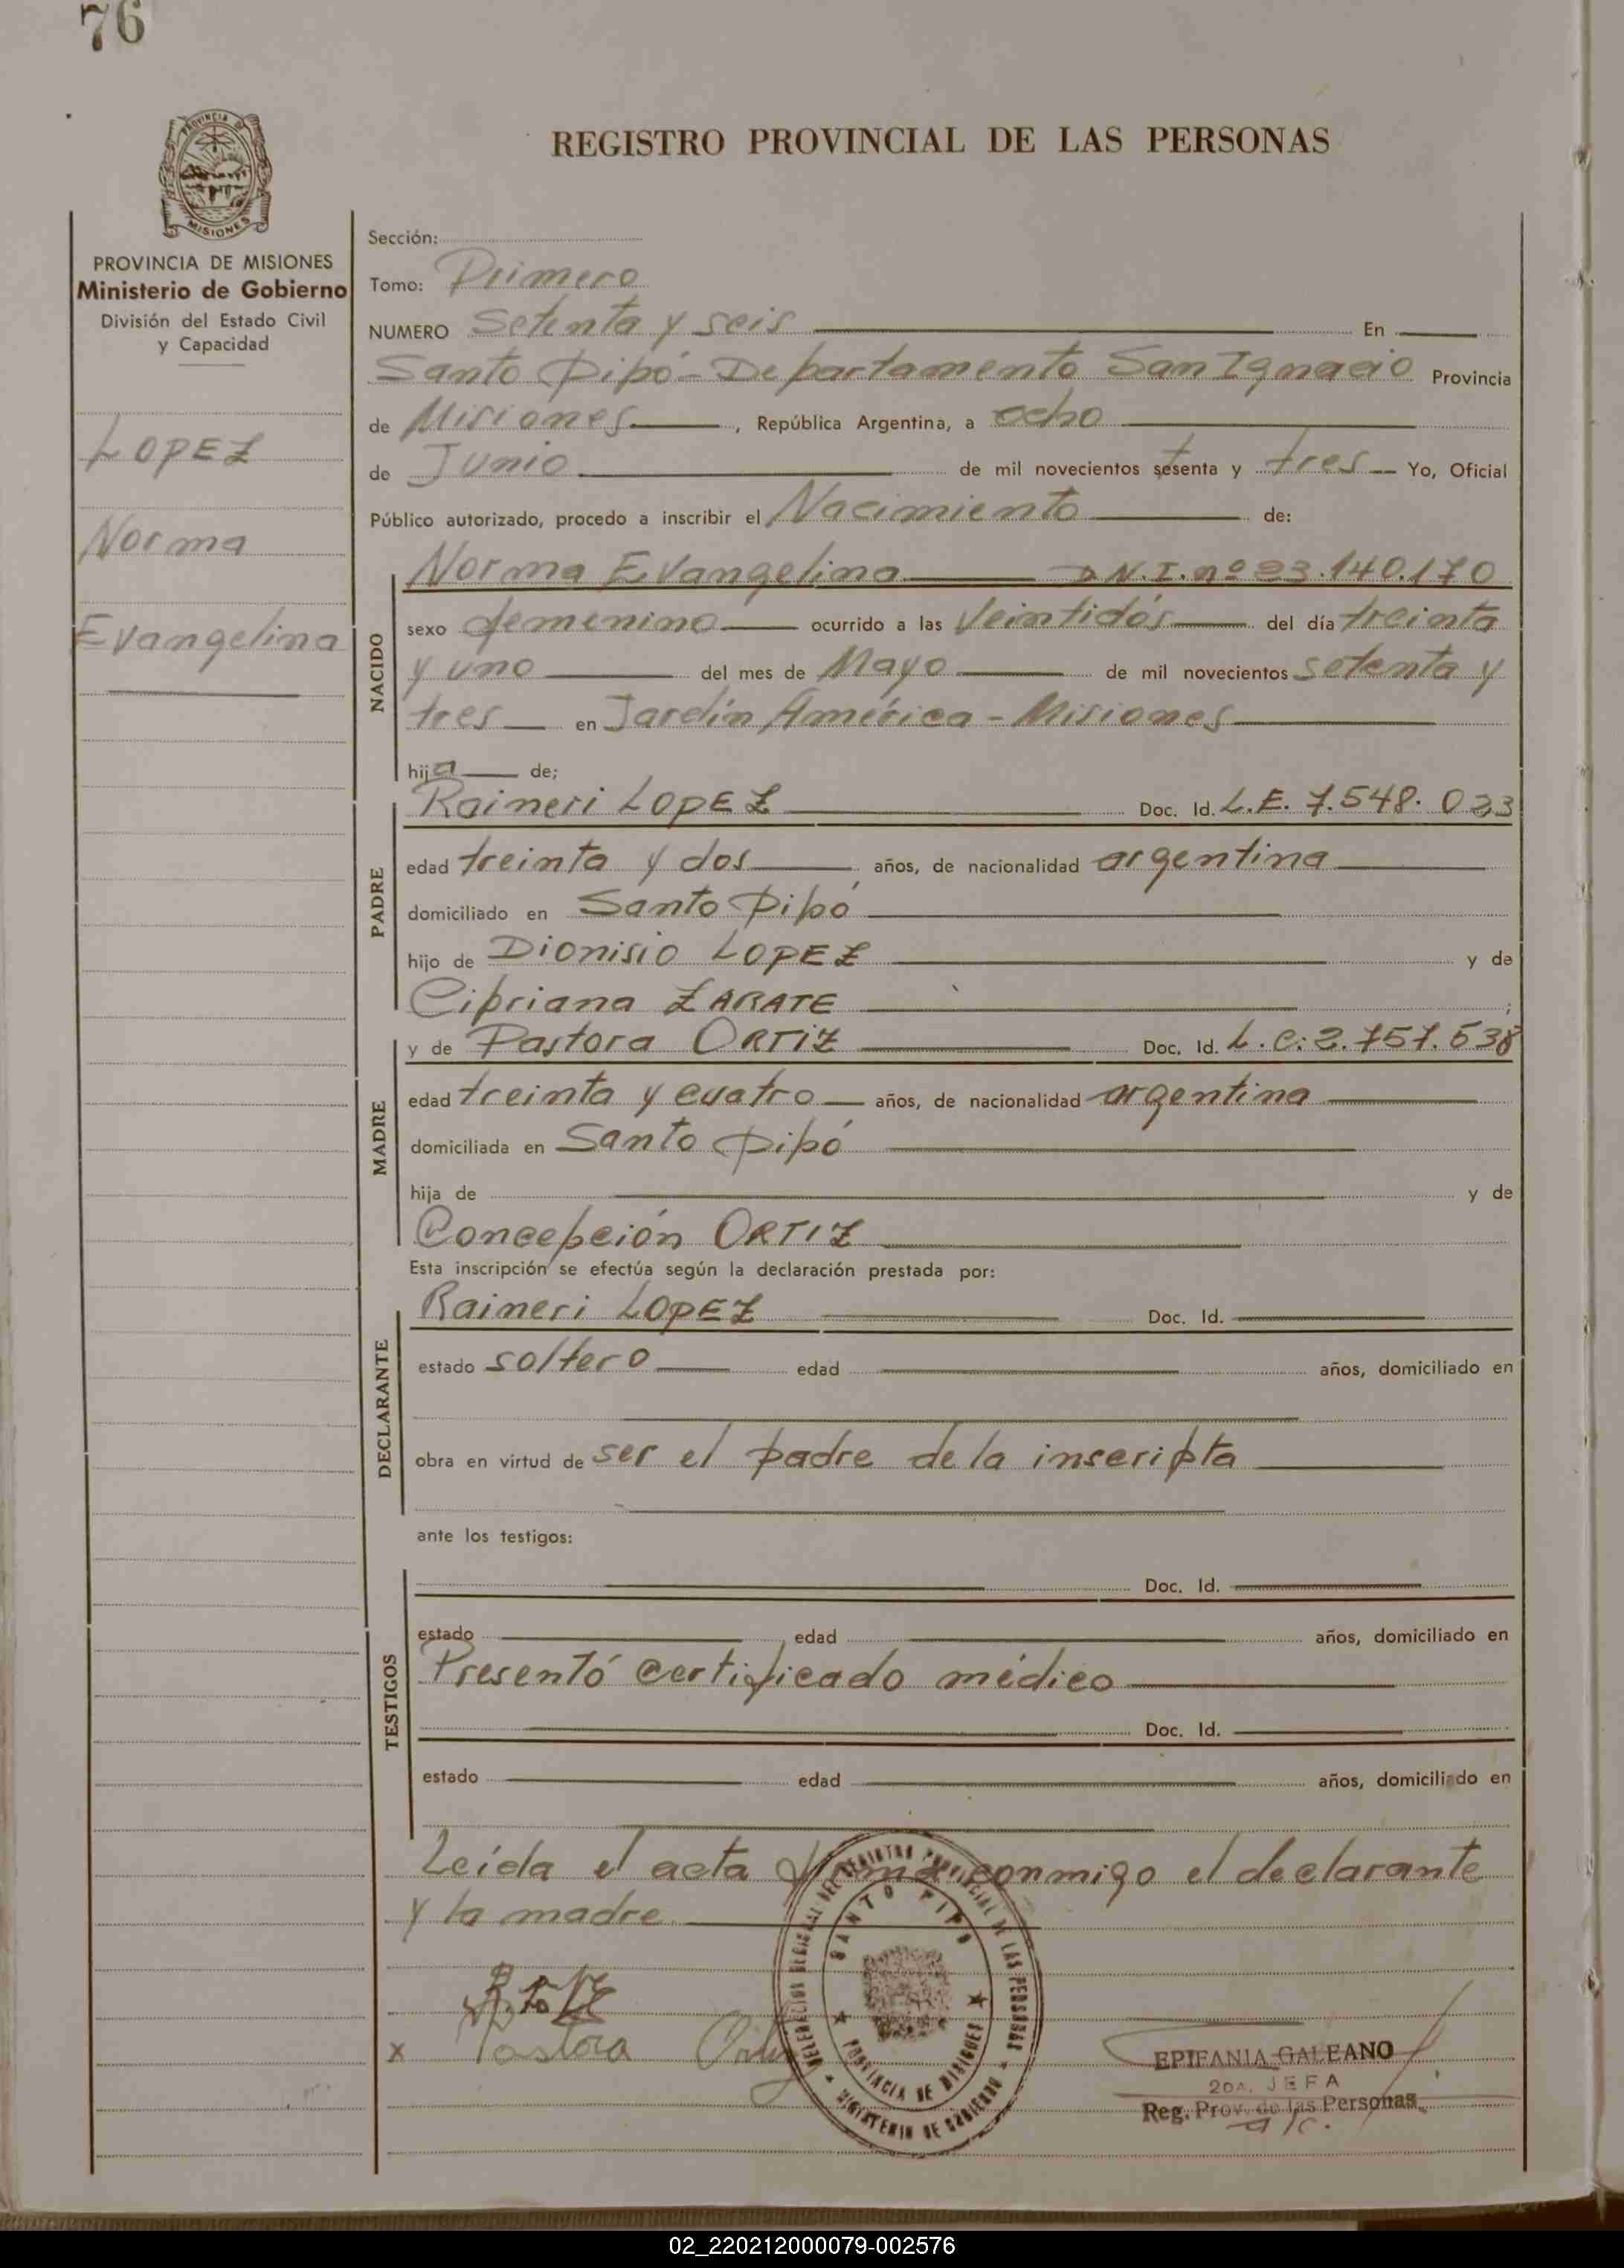 76
PROVINCIA DE
MISIONES
REGISTRO PROVINCIAL DE LAS PERSONAS
PROVINCIA DE MISIONES
Ministerio de Gobierno
División del Estado Civil
y Capacidad
LOPEZ
Norma
Evangelina
Sección:
Tomo: Primero
NUMERO Setenta y seis En
Santo Pipó - Departamento San Ignacio Provincia
de Misiones, República Argentina, a ocho
de Junio de mil novecientos setenta y tres Yo, Oficial
Público autorizado, procedo a inscribir el Nacimiento de:
NACIDO
Norma Evangelina D.N.I. nº 23.140.170
sexo femenino ocurrido a las Veintidós del día treinta
y uno del mes de Mayo de mil novecientos setenta y
tres en Jardín América - Misiones
hija de;
PADRE
Raineri LOPEZ Doc. Id. L.E. 7.548.023
edad treinta y dos años, de nacionalidad argentina
domiciliado en Santo Pipó
hijo de Dionisio LOPEZ y de
Cipriana ZARATE ;
MADRE
y de Pastora ORTIZ Doc. Id. L.C. 2.757.538
edad treinta y cuatro años, de nacionalidad argentina
domiciliada en Santo Pipó
hija de y de
Concepción ORTIZ
Esta inscripción se efectúa según la declaración prestada por:
DECLARANTE
Raineri LOPEZ Doc. Id.
estado soltero edad años, domiciliado en
obra en virtud de ser el padre de la inscripta
ante los testigos:
TESTIGOS
Doc. Id.
estado edad años, domiciliado en
Presentó certificado médico
Doc. Id.
estado edad años, domiciliado en
Leída el acta firma conmigo el declarante
y la madre
DELEGACION REGIONAL DEL REGISTRO PROVINCIAL DE LAS PERSONAS
MINISTERIO DE GOBIERNO
SANTO PIPO
PROVINCIA DE MISIONES
x Pastora Ortiz
EPIFANIA GALEANO
2DA. JEFA
Reg. Prov. de las Personas
a/c.
02_220212000079-002576